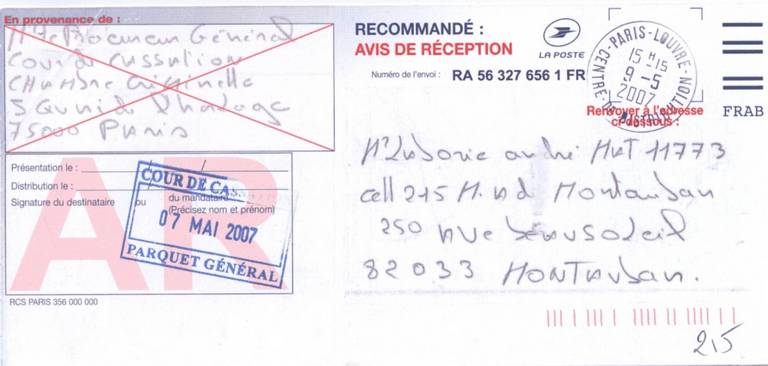 En provenance de :
Mr le Procureur Général
Cour de Cassation
Chambre Criminelle
5 Quai de l'horloge
75000 Paris
RECOMMANDÉ :
AVIS DE RÉCEPTION
LA POSTE
Numéro de l'envoi : RA 56 327 656 1 FR
PARIS-LOUVRE
15 H 15
9-5
2007
CENTRE DE DISTRIBUTION
FRAB
Renvoyer à l'adresse
ci-dessous :
Mr Laborie andré MAT 11773
cell 215 M. nd Montauban
250 rue beausoleil
82033 MONTAUBAN.
215
AR
Présentation le :
Distribution le :
Signature du destinataire ou du mandataire
(Précisez nom et prénom)
COUR DE CASSATION
07 MAI 2007
PARQUET GÉNÉRAL
RCS PARIS 356 000 000